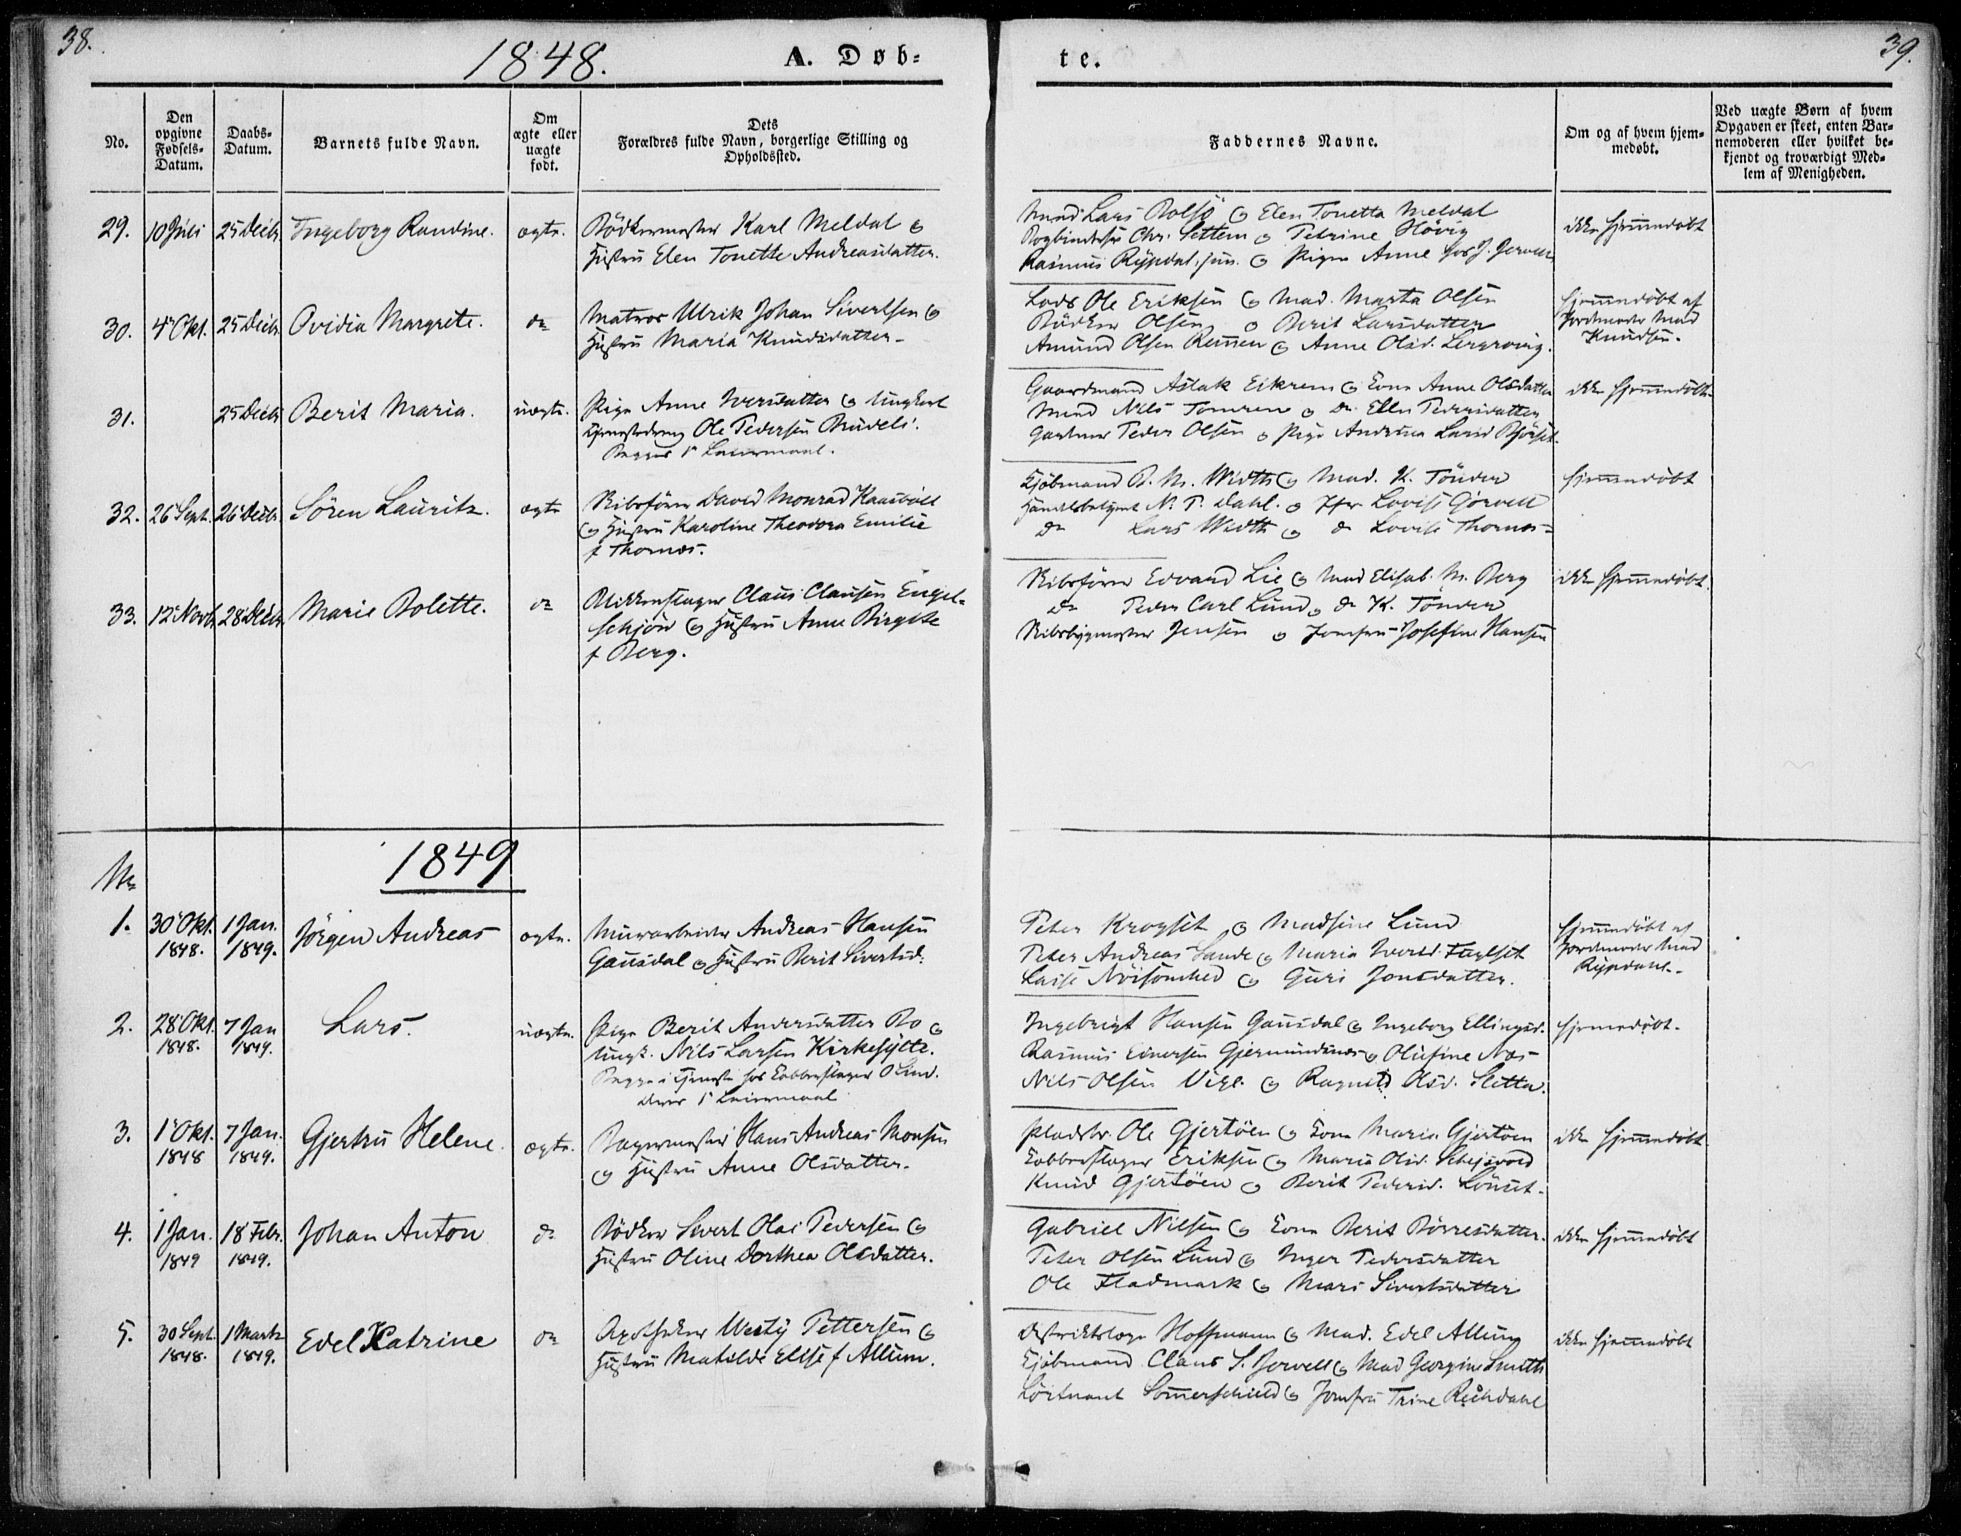 38.
1848.
A. Døb-
te.
39.
No.
Den
opgivne
Fødsels-
Datum.
Daabs-
Datum.
Barnets fulde Navn.
Om
ægte eller
uægte
født.
Dets
Forældres fulde Navn, borgerlige Stilling og
Opholdssted.
Faddernes Navne.
Om og af hvem hjem-
medøbt.
Ved uægte Børn af hvem
Opgaven er skeet, enten Bar-
nemoderen eller hvilket be-
kjendt og troværdigt Med-
lem af Menigheden.
29. 10 Juli 25 Decbr Ingeborg Randine. ægte. Bödkermester Karl Meldal og
Hustru Elen Tonette Andreasdatter.
Lars Bolsö og Elen Tonetta Meldal
Bogbinder Chr. Settem og Petrine Hövig
Rasmus Rypdal jun. og Pigen Anne hos J. Gorvell
ikke hjemmedöbt
30. 4 Okt. 25 Decbr Ovidia Margrete. do Matros Ulrik Johan Sivertsen og
Hustru Maria Knudsdatter.
Lods Ole Eriksen og Mad. Marta Olsen
Bödker Olsen og Berit Larsdatter
Amund Olsen Remen og Anne Olsd. Lergrovig.
hjemmedöbt af
Jordmoder Mad
Knudsen.
31. 25 Decbr Berit Maria. uægte. Pige Anne Iversdatter og Ungkarl
Ole Pedersen Brudeli.
Begges 1ste Leiermaal.
Gaardmand Aslak Eikrem og Kone Anne Olsdatter
Nils Tomren og do Ellen Pedersdatter
Gartner Peder Olsen og Pige Andrine Larsd
ikke hjemmedöbt.
32. 26 Sept. 26 Decbr Sören Lauritz. ægte Skibsförer David Monrad Kaasböll
og Hustru Karoline Theodora Emilie
f Thornæs.
Kjöbmand B. M. Width og Mad. K. Tönder
Handelsbetjent N. P. Dahl. og Jfr Lovise Görvell
do Lars Width og do Lovise Thornæs
hjemmedöbt
33. 12 Novb. 28 Decbr. Marie Bolette. do Blikkenslager Claus Clausen Engel-
schjön og Hustru Anne Birgitte
f Berg.
Skibsförer Edvard Lie og Mad Elisab. M. Berg
do Peder Carl Lund og do K. Tönder
Skibsbygmester Jensen og Jomfru Josefine Hansen
ikke hjemmedöbt.
1849
No
1. 30 Okt. 1848. 1 Jan. 1849. Jörgen Andreas ægte. Murarbeider Andreas Hansen
Gausdal og Hustru Berit Sivertsd.
Peter Krogset og Madsine Lund
Peter Andreas Sande og Maria Iversd. Farlset
Nöisomhed og Guri Jonsdatter.
hjemmedöbt af
Jordmoder Mad
Rypdahl.
2. 28 Okt. 1848. 7 Jan 1849. Lars. uægte. Pige Berit Andersdatter Bo og
Ungk. Nils Larsen Kirkesylte.
Begge i Tjeneste hos Kobberslager O Lind.
Deres 1ste Leiermaal
Ingebrigt Hansen Gausdal og Ingeborg Ellingsd.
Rasmus Einersen Gjermundnæs og Olufine Næs
Nils Olsen Vige. og Ragnild Olsd. Sletta.
hjemmedöbt.
3. 1 Okt. 1848 7 Jan. 1849. Gjertru Helene. ægte. Bagermester Hans Andreas Monsen
og Hustru Anne Olsdatter.
Pladsbr. Ole Gjertöen og Kone Maria Gjertöen
Kobberslager Eriksen og Maria Olsd.
Knud Gjertöen og Berit Pedersd. Lönset.
ikke hjemmedöbt.
4. 1 Jan. 1849 18 Febr. 1849. Johan Anton do Bödker Sivert Olai Pedersen og
Hustru Oline Dorthea Olsdatter.
Gabriel Nilsen og Kone Berit Börresdatter.
Peter Olsen Lund og Inger Pedersdatter
Ole Fladmark og Mari Sivertsdatter
ikke hjemmedöbt
5. 30 Sept. 1848. 1 Marts 1849. Edel Katrine do Apotheker Westy Pettersen og
Hustru Matilde Elise f Allum.
Distriktslæge Hoffmann og Mad. Edel Allum
Kjöbmand Claus S. Gorvell og Mad Georgine Smith
Löitnant Somerschield og Jomfru Trine Reihdahl
ikke hjemmedöbt